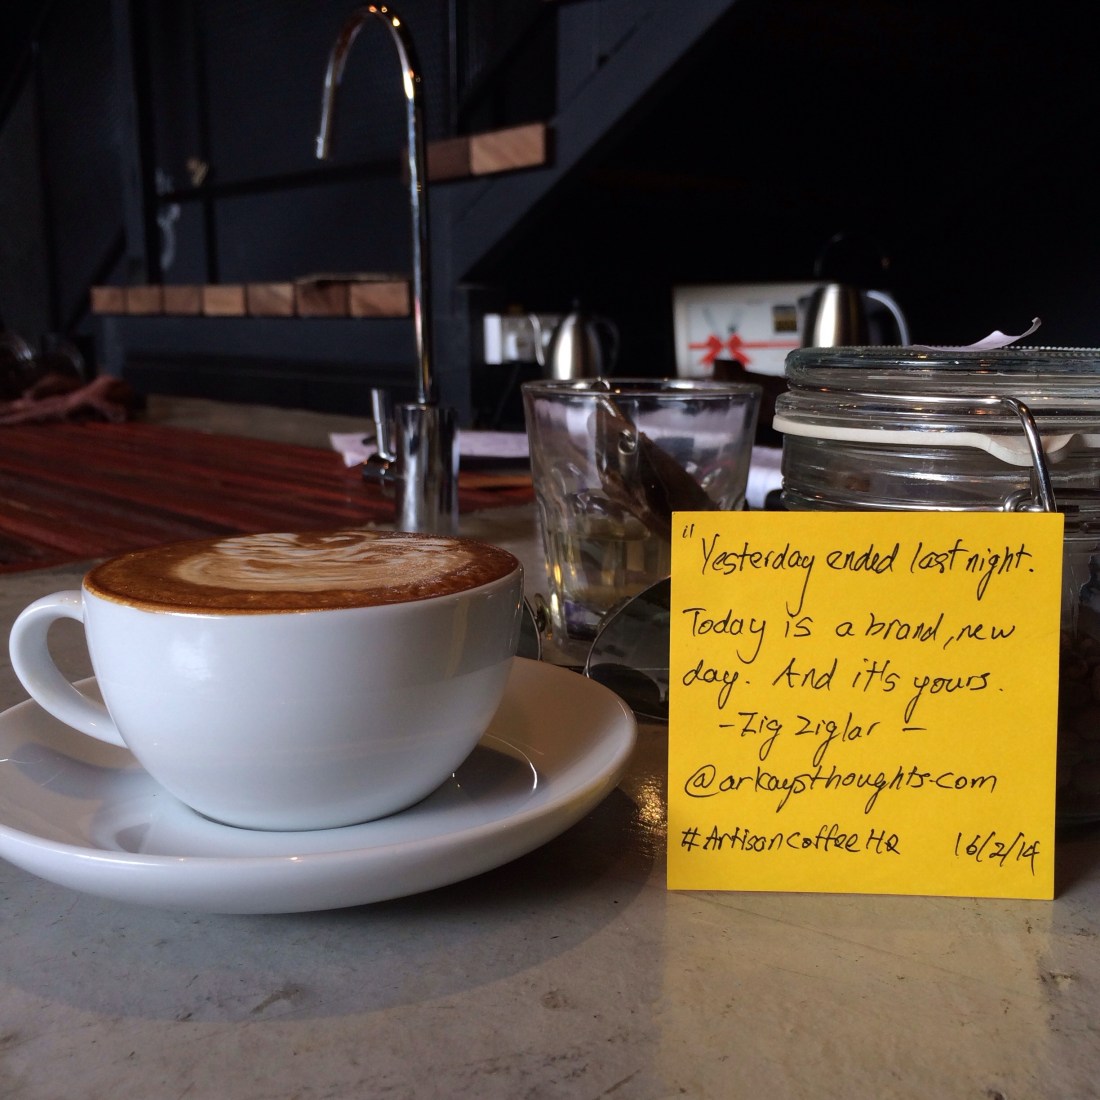 "Yesterday ended last night.
Today is a brand, new
day. And it's yours.
- Zig Ziglar -
@arkaysthoughts.com
#ArtisanCoffeeHQ 16/2/14